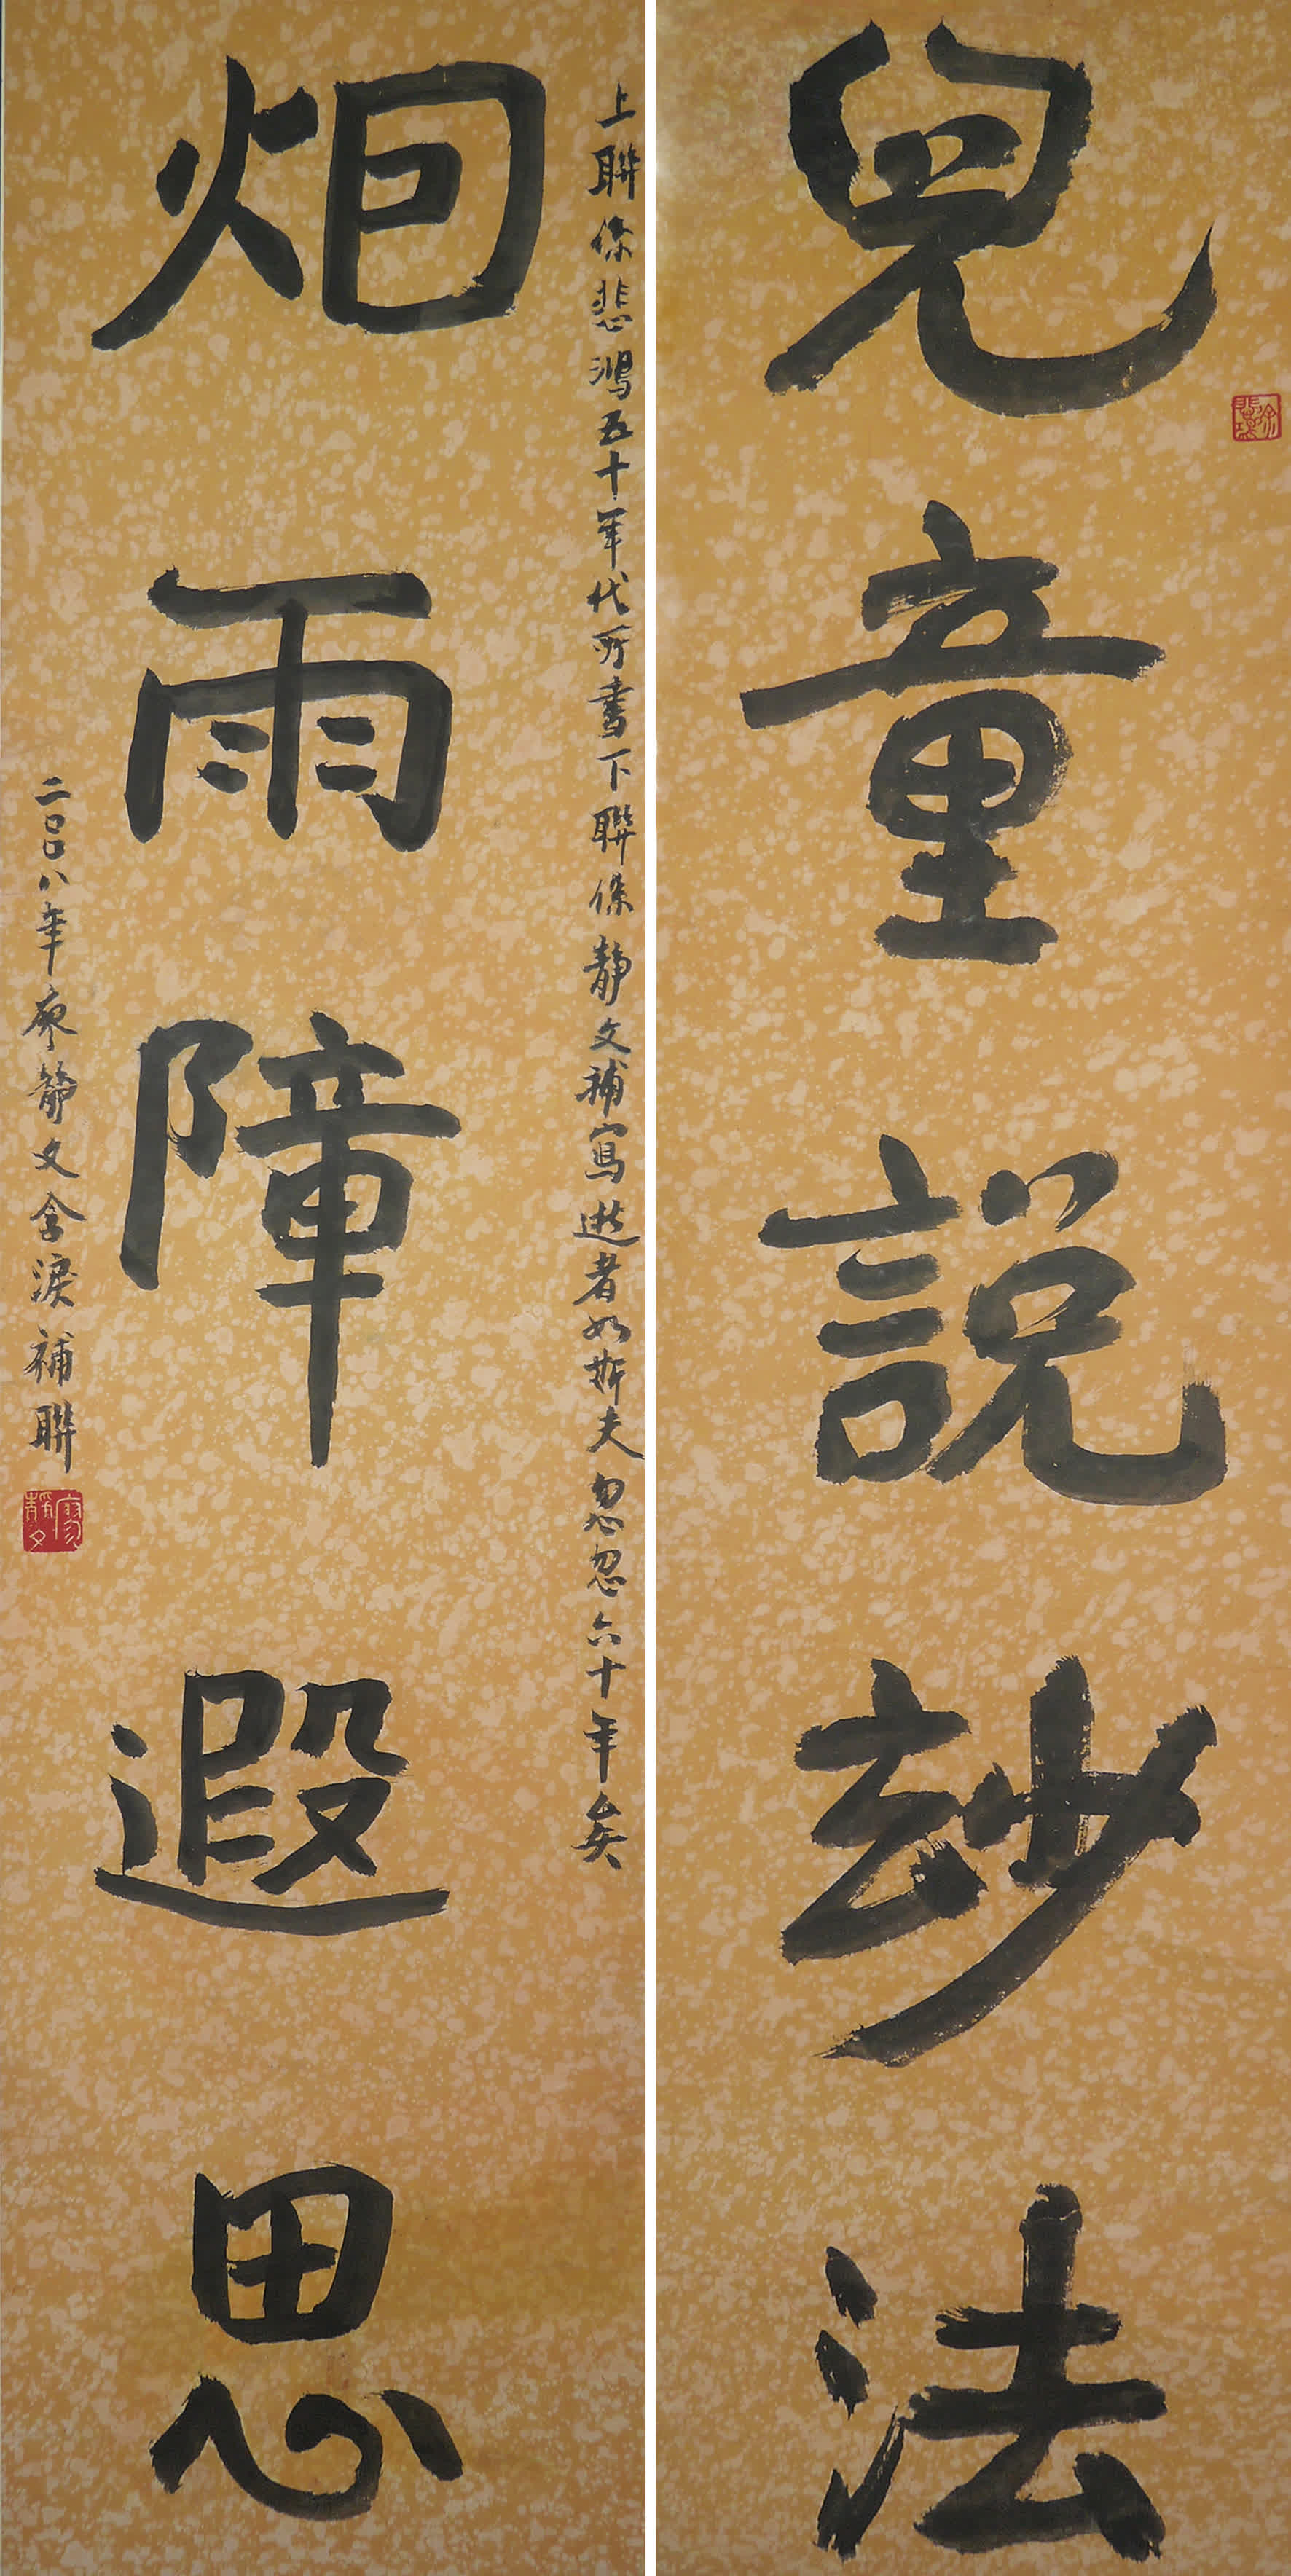 兒童説玅法
徐悲鴻
上聯係悲鴻五十年代所書下聯係靜文補寫逝者如斯夫忽忽六十年矣
烟雨障遐思
二〇〇八年廖靜文含淚補聯
廖靜文